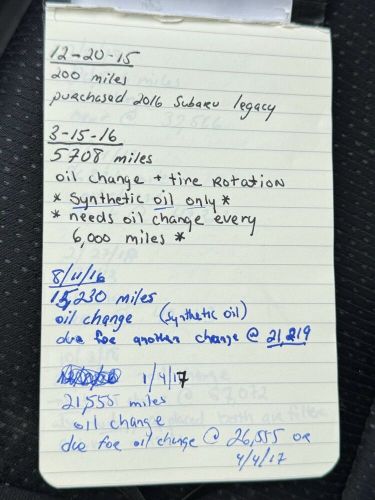 12-20-15
200 miles
purchased 2016 Subaru legacy
3-15-16
5708 miles
oil change + tire Rotation
* Synthetic oil only *
* needs oil change every
6,000 miles *
8/11/16
15,230 miles
oil change (synthetic oil)
due for another change @ 21,219
1/4/17
21,555 miles
oil change
due for oil change @ 26,555 or
4/4/17